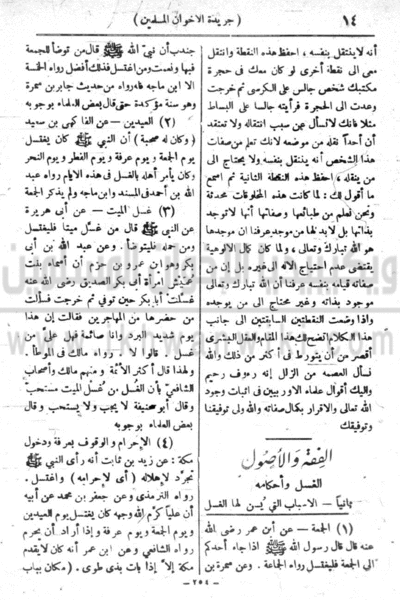 ١٤
( جريدة الاخوان المسلمين )
أنه لا ينتقل بنفسه ، احفظ هذه النقطة وانتقل
معى الى نقطة أخرى لو كان معك فى حجرة
مكتبك شخص جالس على الكرسى ثم خرجت
وعدت الى الحجرة فرأيته جالسا على البساط
مثلا فانك لا تسأل عن سبب انتقاله ولا تعتقد
أن أحداً نقله من موضعه لانك تعلم من صفات
هذا الشخص أنه ينتقل بنفسه ولا يحتاج الى
من ينقله ، احفظ هذه النقطة الثانية ثم اسمع
ما أقول لك : لما كانت هذه المخلوقات محدثة
ونحن نعلم من طبائعها وصفاتها أنها لا توجد
بذاتها بل لابد لها من موجد عرفنا ان موجدها
هو الله تبارك وتعالى ، ولما كان كمال الالوهية
يقتضى عدم احتياج الاله الى غيره بل إن من
صفاته قيامه بنفسه عرفنا ان الله تبارك وتعالى
موجود بذاته وغير محتاج الى من يوجده
واذا وضعت النقطتين السابقتين الى جانب
هذا الكلام اتضح لك هذا المقام والعقل البشرى
أقصر من أن يتورط فى أكثر من ذلك والله
نسأل العصمة من الزلل إنه رءوف رحيم
واليك أقوال علماء الاوربيين فى اثبات وجود
الله تعالى والاقرار بكمال صفاته والله ولى توفيقنا
وتوفيقك
الفقه والأصول
الغسل وأحكامه
ثمانياً – الاسباب التى يُسن لها الغسل
(١) الجمعة – عن ابن عمر رضى الله
عنه قال قال رسول الله ﷺ اذا جاء أحدكم
الى الجمعة فليغتسل رواه الجماعة . وعن سمرة بن
جندب أن نبي الله ﷺ قال من توضأ للجمعة
فبها ونعمت ومن اغتسل فذلك أفضل رواه الخمسة
الا ابن ماجه فانه رواه من حديث جابر بن سمرة
وهو سنة مؤكدة حتى قال بعض العلماء بوجوبه
(٢) العيدين – عن الفاكهى بن سعيد
( وكان له صحبة ) أن النبي ﷺ كان يغتسل
يوم الجمعة ويوم عرفة ويوم الفطر ويوم النحر
وكان يأمر أهله بالغسل فى هذه الايام رواه عبد
الله بن أحمد فى المسند وابن ماجه ولم يذكر الجمعة
(٣) غسل الميت – عن أبى هريرة
عن النبي ﷺ قال من غسل ميتا فليغتسل
ومن حمله فليتوضأ . وعن عبد الله بن أبى
بكر وهو ابن عمرو بن حزم أن أسماء بنت
عميس امرأة أبى بكر الصديق رضى الله عنه
غسلت أبا بكر حين توفى ثم خرجت فسألت
من حضرها من المهاجرين فقالت إن هذا
يوم شديد البرد وانا صائمة فهل علىّ من
غسل . قالوا لا . رواه مالك فى الموطأ
ولهذا قال أكثر الأئمة ومنهم مالك وأصحاب
الشافعى بأن الغسل من غسل الميت مستحب
وقال أبو حنيفة لا يجب ولا يستحب وقال
بعض العلماء بوجوبه
(٤) الإحرام والوقوف بعرفة ودخول
مكة : عن زيد بن ثابت أنه رأى النبي ﷺ
تجرّد لإهلاله ( أى لإحرامه ) واغتسل .
رواه الترمذى وعن جعفر بن محمد عن أبيه
أن علياً كرم الله وجهه كان يغتسل يوم العيدين
ويوم الجمعة ويوم عرفة وإذا أراد أن يحرم
رواه الشافعى وعن ابن عمر أنه كان لا يقدم
مكة إلا إذا بات بذى طوى ( مكان بباب
– ٢٥٤ –